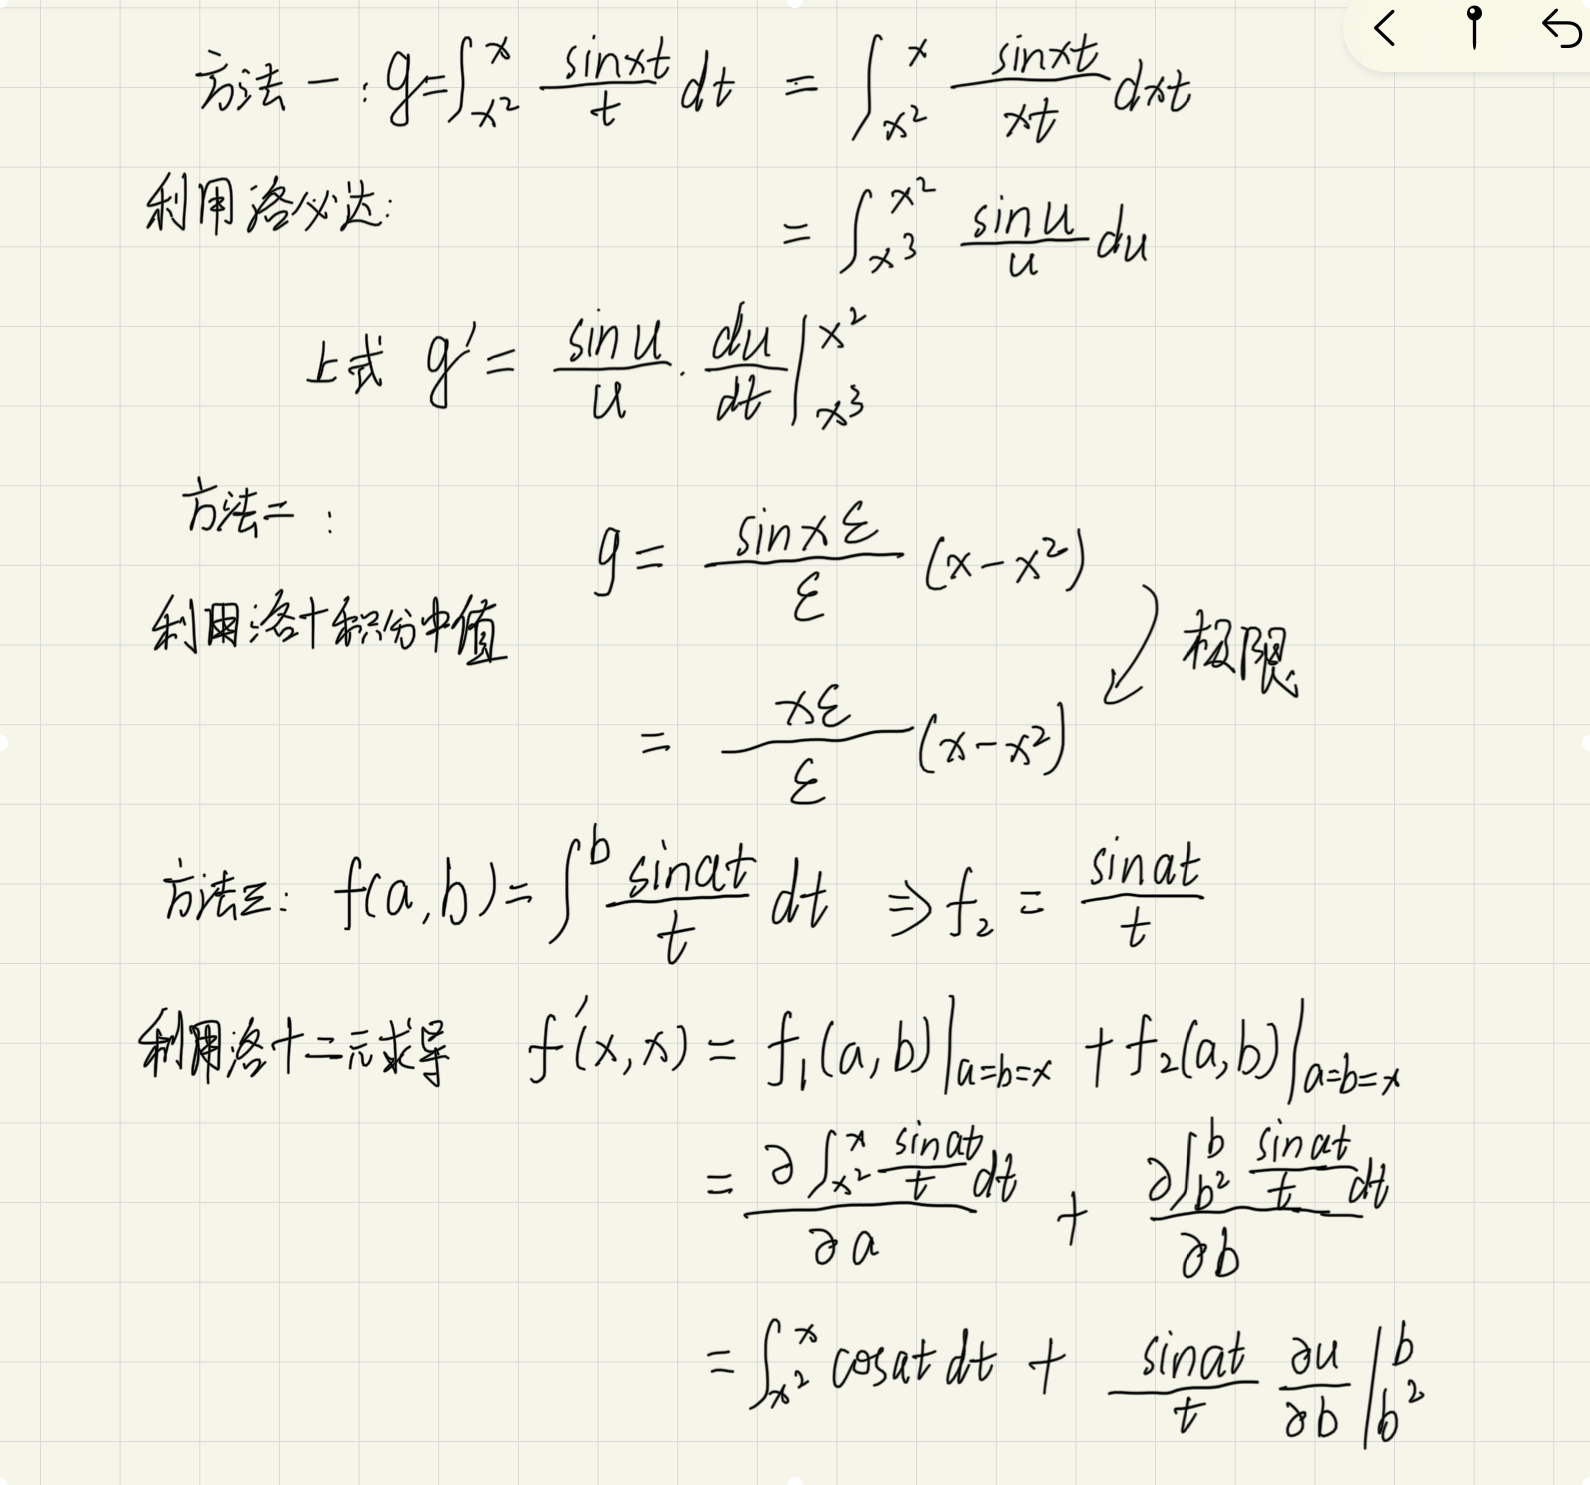 方法一: g=∫_{x²}^{x} \frac{sinxt}{t} dt = ∫_{x²}^{x} \frac{sinxt}{xt} dxt
利用洛必达:
= ∫_{x³}^{x²} \frac{sinu}{u} du
上式 g' = \frac{sinu}{u} · \frac{du}{dt} |_{x³}^{x²}
方法二:
g = \frac{sinxε}{ε} (x-x²)
利用洛+积分中值
极限
= \frac{xε}{ε} (x-x²)
方法三: f(a,b) = ∫^{b} \frac{sinat}{t} dt ⇒ f₂ = \frac{sinat}{t}
利用洛+二元求导 f'(x,x) = f₁(a,b)|_{a=b=x} + f₂(a,b)|_{a=b=x}
= \frac{∂∫_{x²}^{x} \frac{sinat}{t} dt}{∂a} + \frac{∂∫_{b²}^{b} \frac{sinat}{t} dt}{∂b}
= ∫_{x²}^{x} cosat dt + \frac{sinat}{t} \frac{∂u}{∂b} |_{b²}^{b}